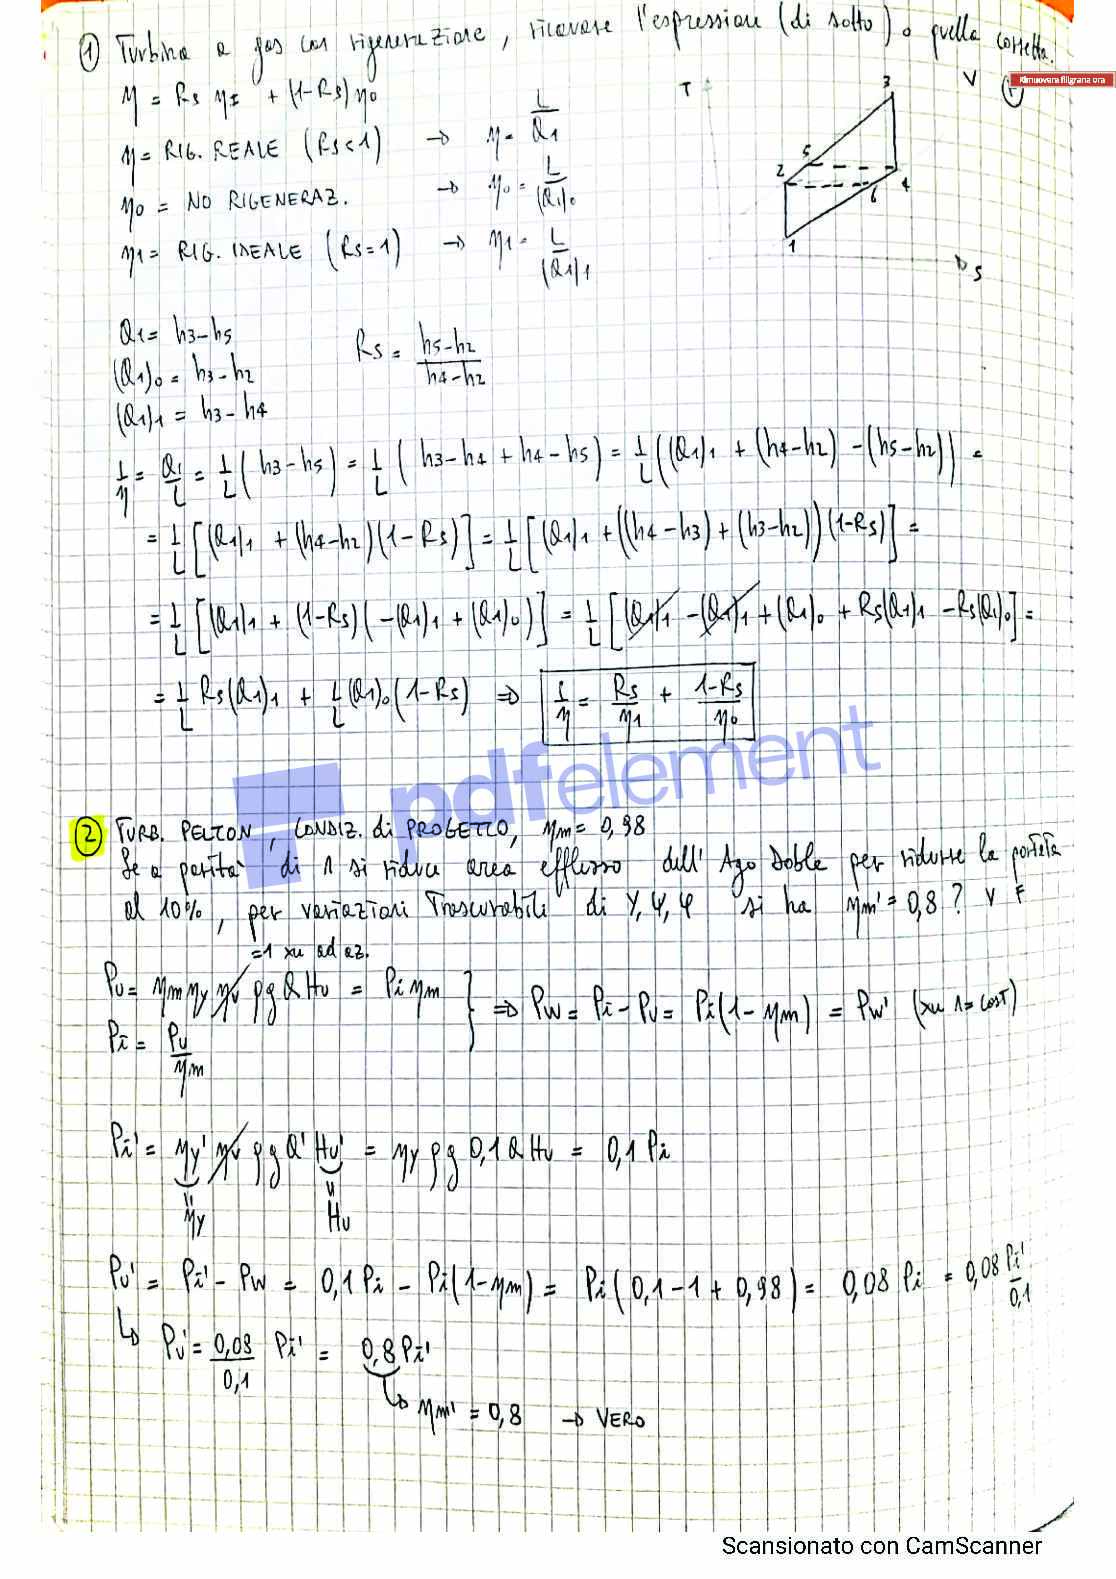 ① Turbina a gas con rigenerazione, ricavare l'espressione (di sotto) o quella corretta.
η = Rs η1 + (1-Rs) η0
V F
Rimuovere filigrana ora
η = RIG. REALE (Rs<1) → η = L/Q1
η0 = NO RIGENERAZ. → η0 = L/(Q1)0
η1 = RIG. IDEALE (Rs=1) → η1 = L/(Q1)1
T
3
5
2
4
6
1
S
Q1 = h3-h5
(Q1)0 = h3-h2
(Q1)1 = h3-h4
Rs = (h5-h2)/(h4-h2)
1/η = Q1/L = 1/L (h3-h5) = 1/L (h3-h4 + h4-h5) = 1/L ((Q1)1 + (h4-h2) - (h5-h2)) =
= 1/L [(Q1)1 + (h4-h2)(1-Rs)] = 1/L [(Q1)1 + ((h4-h3) + (h3-h2))(1-Rs)] =
= 1/L [(Q1)1 + (1-Rs)(-(Q1)1 + (Q1)0)] = 1/L [(Q1)1 - (Q1)1 + (Q1)0 + Rs(Q1)1 - Rs(Q1)0] =
= 1/L Rs(Q1)1 + 1/L (Q1)0 (1-Rs) ⇒ 1/η = Rs/η1 + (1-Rs)/η0
pdfelement
② TURB. PELTON, CONDIZ. di PROGETTO, ηm = 0,98
Se a parità di n si riduce area efflusso dell'Ago Doble per ridurre la portata
al 10%, per variazioni Trascurabili di Y, ψ, φ si ha ηm' = 0,8? V F
=1 xu ad az.
Pu = ηm ηy ηv ρg Q Hu = Pi ηm
Pi = Pu/ηm
⇒ Pw = Pi - Pu = Pi(1-ηm) = Pw' (xu n=cost)
Pi' = ηy' ηv ρg Q' Hu' = ηy ρg 0,1 Q Hu = 0,1 Pi
ηy
Hu
Pu' = Pi' - Pw = 0,1 Pi - Pi(1-ηm) = Pi(0,1 - 1 + 0,98) = 0,08 Pi = 0,08 Pi'/0,1
↳ Pu' = 0,08/0,1 Pi' = 0,8 Pi'
↳ ηm' = 0,8 → VERO
Scansionato con CamScanner